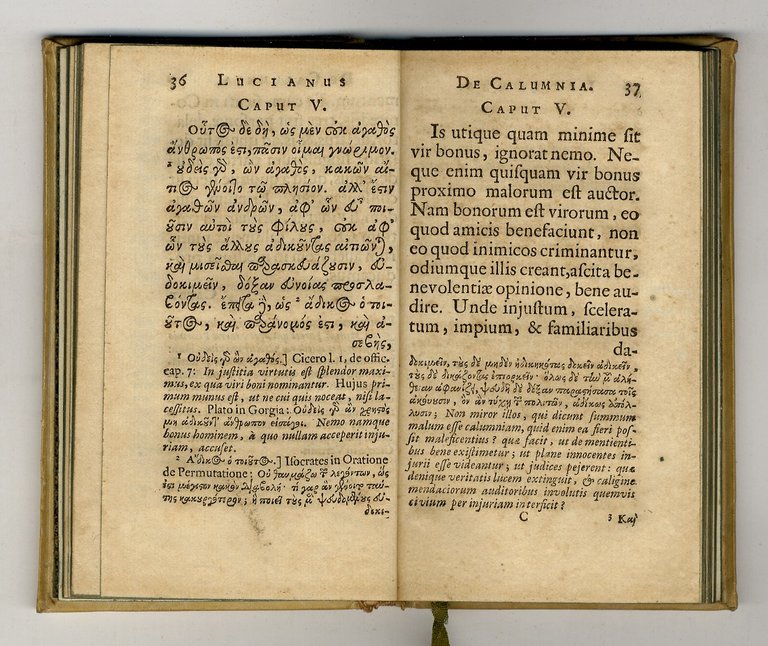 36 LUCIANUS
CAPUT V.
Οὗτος δὲ δὴ, ὡς μὲν οὐκ ἀγαθὸς
ἄνθρωπός ἐστι, πᾶσιν οἶμαι γνώριμον.
¹ οὐδεὶς γὰρ, ὢν ἀγαθὸς, κακῶν αἴ-
τιος γένοιτο τῷ πλησίον. ἀλλ' ἔστιν
ἀγαθῶν ἀνδρῶν, ἀφ' ὧν εὖ ποι-
οῦσιν αὐτοὶ τοὺς φίλους, οὐκ ἀφ'
ὧν τοὺς ἄλλους ἀδικοῦντας αἰτιῶνται,
καὶ μισεῖσθαι παρασκευάζουσιν, εὐ-
δοκιμεῖν, δόξαν εὐνοίας προσλα-
βόντας. ἔπειτα δὲ, ὡς ² ἄδικος ὁ τοι-
οῦτος, καὶ παράνομός ἐστι, καὶ ἀ-
σεβὴς,
¹ Οὐδεὶς γὰρ ὢν ἀγαθὸς.] Cicero l. 1, de offic.
cap. 7: In justitia virtutis est splendor maxi-
mus, ex qua viri boni nominantur. Hujus pri-
mum munus est, ut ne cui quis noceat, nisi la-
cessitus. Plato in Gorgia: Οὐδεὶς γὰρ ἂν χρηστὸς
μὴ ἀδικοῦντ' ἄνθρωπον εἰσάγοι. Nemo namque
bonus hominem, à quo nullam acceperit inju-
riam, accuset.
² Ἄδικος ὁ τοιοῦτος.] Isocrates in Oratione
de Permutatione: Οὐ θαυμάζω τῶν λεγόντων, ὡς
ἔστι μέγιστον κακὸν διαβολή· τί γὰρ ἂν γένοιτο ταύ-
της κακουργότερον; ἣ ποιεῖ τοὺς μὲν ψευδομένους εὐ-
δοκι-
DE CALUMNIA. 37
CAPUT V.
Is utique quam minime sit
vir bonus, ignorat nemo. Ne-
que enim quisquam vir bonus
proximo malorum est auctor.
Nam bonorum est virorum, eo
quod amicis benefaciunt, non
eo quod inimicos criminantur,
odiumque illis creant, ascita be-
nevolentiæ opinione, bene au-
dire. Unde injustum, scelera-
tum, impium, & familiaribus
da-
δοκιμεῖν, τοὺς δὲ μηδὲν ἠδικηκότας δοκεῖν ἀδικεῖν,
τοὺς δὲ δικάζοντας ἐπιορκεῖν· ὅλως δὲ τὴν μὲν ἀλή-
θειαν ἀφανίζει, ψευδῆ δὲ δόξαν παραστήσασα τοῖς
ἀκούουσιν, ὃν ἂν τύχῃ τῶν πολιτῶν, ἀδίκως ἀπόλ-
λυσιν; Non miror illos, qui dicunt summum
malum esse calumniam, quid enim ea fieri pos-
sit maleficentius? quæ facit, ut de mentienti-
bus bene existimetur; ut plane innocentes in-
jurii esse videantur; ut judices pejerent: quæ
denique veritatis lucem extinguit, & caligine
mendaciorum auditoribus involutis quemvis
civium per injuriam interficit?
C ³ Καὶ